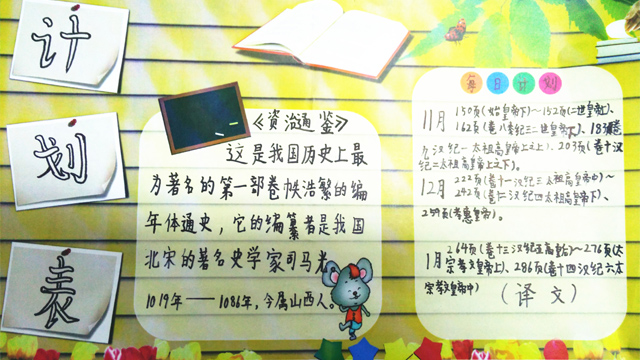 计
划
表
《资治通鉴》
这是我国历史上最
为著名的第一部卷帙浩繁的编
年体通史，它的编纂者是我国
北宋的著名史学家司马光
1019年——1086年，今属山西人。
每日计划
11月 150页(始皇帝下)～152页(二世皇帝上)、
162页(卷八秦纪三二世皇帝下)、183页卷
九汉纪一太祖高皇帝上之上)、203页(卷十汉
纪二太祖高皇帝上之下)。
12月 222页(卷十一汉纪三太祖高皇帝中)～
242页(卷十二汉纪四太祖高皇帝下)、
259页(孝惠皇帝)。
1月 264页(卷十三汉纪五高后)～276页(太
宗孝文皇帝上)、286页(卷十四汉纪六太
宗孝文皇帝中)
(译文)